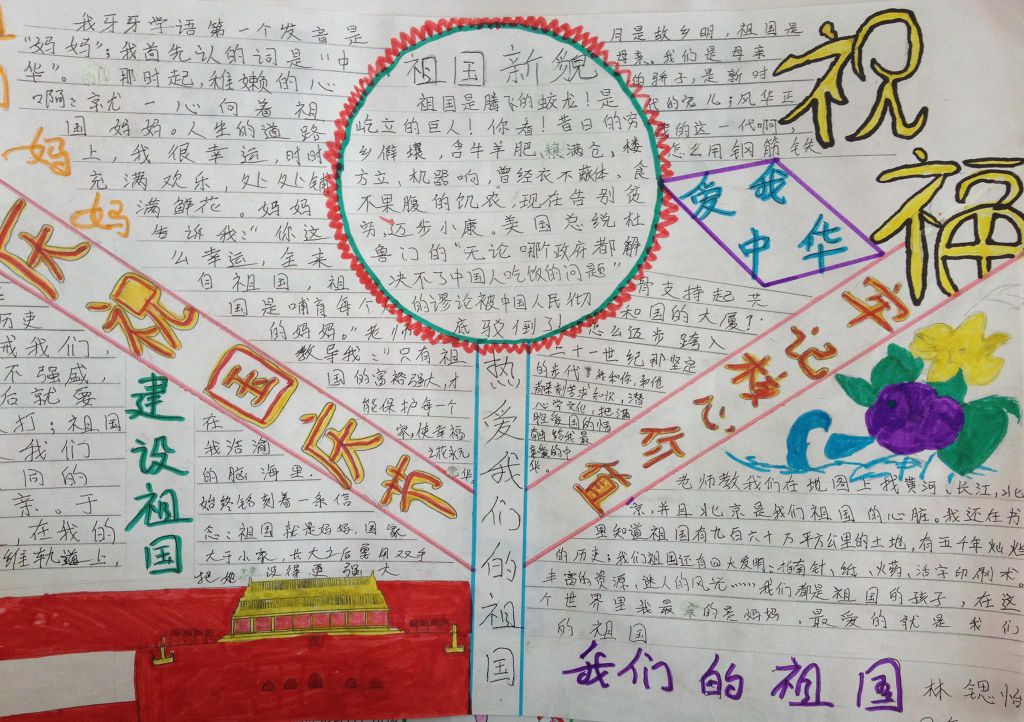 我牙牙学语第一个发音是
"妈妈"；我首先认的词是"中
华"。那时起，稚嫩的心
啊：就一心向着祖
国妈妈。人生的道路
上，我很幸运，时时
充满欢乐，处处铺
满鲜花。妈妈
告诉我："你这
么幸运，全来
自祖国，祖
国是哺育每个人
的妈妈。"老师
教导我："只有祖
国的富裕强大，才
能保护每一个
家，使幸福
之花永元
在
我浩瀚
的脑海里，
始终铭刻着一条信
念：祖国就是妈妈，国家
大于小家，长大之后要用双手
把她 设得更强大
妈
妈
祖国新貌
祖国是腾飞的蛟龙！是
屹立的巨人！你看！昔日的穷
乡僻壤，含牛羊肥，粮满仓，楼
方立，机器响，曾经衣不蔽体，食
不果腹的饥农，现在告别贫
穷，迈步小康。美国总统杜
鲁门的"无论哪个政府都解
决不了中国人吃饭的问题"
的谬论被中国人民彻
底驳倒了！
月是故乡明，祖国是
母亲。我们是母亲
的骄子，是新时
代的宠儿；风华正
的这一代啊，
怎么用钢筋铁
骨支持起共
和国的大厦？
怎么迈步跨入
二十一世纪那坚定
的步代
心学文化，把满
华。
祝
福
爱我
中华
庆祝国庆节
牢记核心价值
建设祖国
历史
戒我们，
不强盛，
后就要
打；祖国
我们
同的
亲。于
，在我的
维轨道上，
热爱我们的祖国
老师教我们在地图上找黄河、长江，北
京，并且北京是我们祖国的心脏。我还在书
里知道祖国有九百六十万平方公里的土地，有五千年灿烂
的历史；我们祖国还有四大发明：指南针、纸、火药、活字印刷术。
丰富的资源、迷人的风光……我们都是祖国的孩子，在这
个世界里我最亲的是妈妈，最爱的就是我们
的祖国
我们的祖国
林锶怡